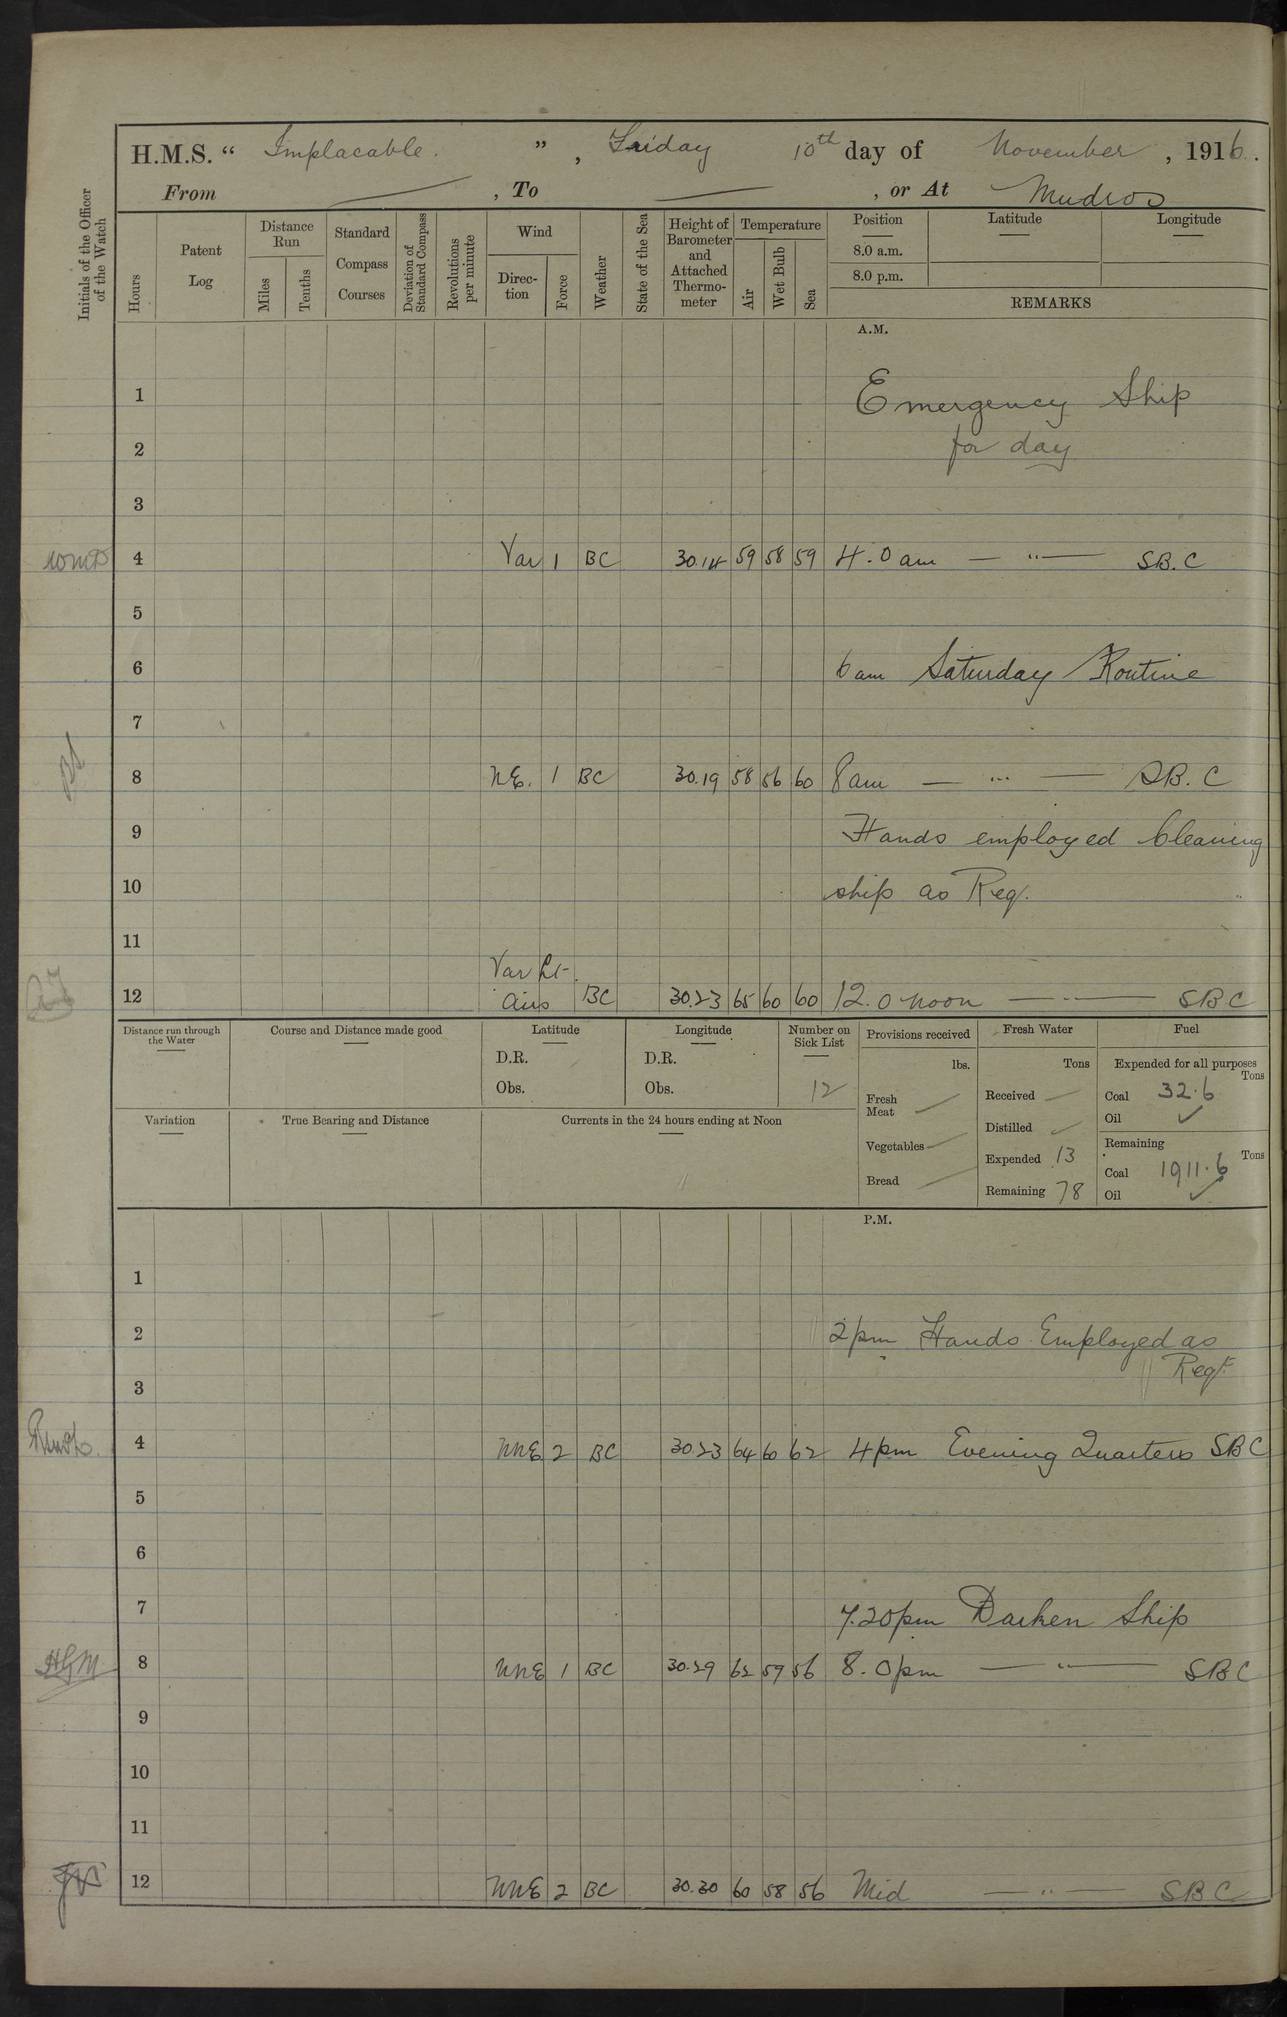 H.M.S. “ Implacable. ” , Friday 10th day of November , 1916.
From — , To — , or At Mudros
Initials of the Officer of the Watch
Hours
Patent Log
Distance Run
Miles
Tenths
Standard Compass Courses
Deviation of Standard Compass
Revolutions per minute
Wind
Direc-tion
Force
Weather
State of the Sea
Height of Barometer and Attached Thermo-meter
Temperature
Air
Wet Bulb
Sea
Position
8.0 a.m.
8.0 p.m.
Latitude
Longitude
REMARKS
A.M.
1 Emergency Ship
2 for day
3
4 Var 1 BC 30.14 59 58 59 4.0 am — " — SB.C
5
6 6 am Saturday Routine
7
8 NE. 1 BC 30.19 58 56 60 8am — " — SB.C
9 Hands employed Cleaning
10 ship as Req.
11
Var Lt
12 Airs BC 30.23 65 60 60 12.0 noon — " — SBC
Distance run through the Water
Course and Distance made good
Latitude
D.R.
Obs.
Longitude
D.R.
Obs.
Number on Sick List
12
Provisions received
lbs.
Fresh Meat
Vegetables
Bread
Fresh Water
Tons
Received
Distilled
Expended 13
Remaining 78
Fuel
Expended for all purposes
Tons
Coal 32.6
Oil ✓
Remaining
Tons
Coal 1911.6
Oil ✓
Variation
True Bearing and Distance
Currents in the 24 hours ending at Noon
P.M.
1
2 2pm Hands Employed as
Reqt
3
4 NNE 2 BC 30.23 64 60 62 4pm Evening Quarters SBC
5
6
7 7.20pm Darken Ship
HGM 8 NNE 1 BC 30.29 62 59 56 8.0pm — " — SBC
9
10
11
12 NNE 2 BC 30.30 60 58 56 Mid — " — SBC